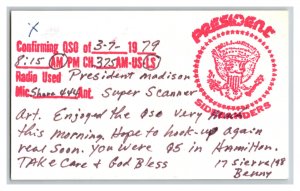 x
PRESIDENT
SIDEBANDERS
Confirming QSO of 3-7- 1979
8:15 AM PM CH. 375 AM-US(LS)
Radio Used President madison
Mic Shure 444 Ant. Super Scanner
Art. Enjoyed the QSO very much
this morning. Hope to hook-up again
real soon. you were Q5 in Hamilton.
TAKe Care & God Bless
17 Sierra 198
Benny